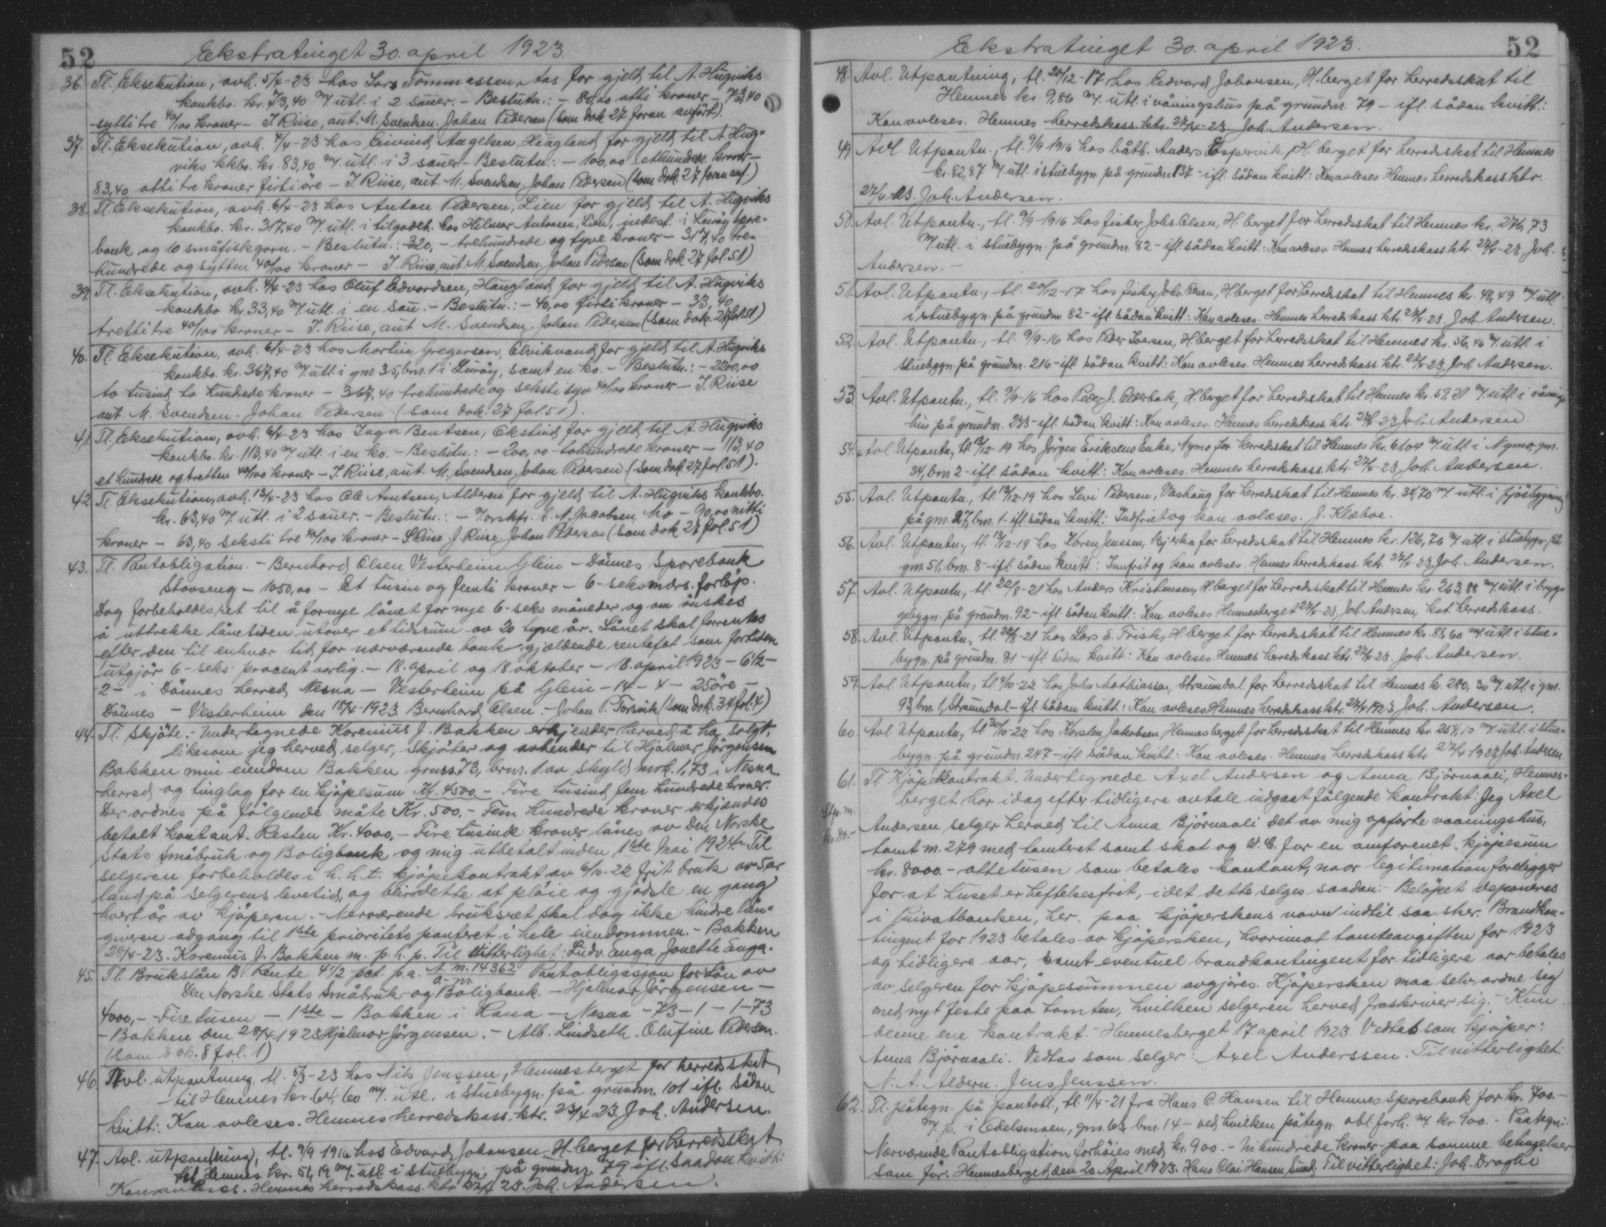 52
Ekstratinget 30. april 1923.
36. Tl. Eksekution, avh. 5/4-23 hos Lars Tommassen, for gjeld til A. Hugviks
konkbo. kr. 73,40 m/ utl. i 2 sauer. - Beslutn.: - 80,00 otti kroner - 73,40
sytti tre 40/100 kroner - J. Riise, aut. M. Svendsen. Johan Pedersen (som dok 27 foran anført).
37. Tl. Eksekution, avh. 4/4-23 hos Eivind Angelsen, Haugland for gjeld til A. Hug-
viks kkbo. kr. 83,40 m/ utl. i 3 sauer - Beslutn.: - 100,00 ethundrede kroner -
83,40 otti tre kroner firti øre - J. Riise, aut M. Svendsen, Johan Pedersen (som dok. 27 foran anf.)
38. Tl. Eksekution, avh. 6/4-23 hos Anton Pedersen, Lien for gjeld til A. Hugviks
konkbo. kr. 317,40 m/ utl. i tilgodeh. hos Hilmar Antonsen, Lien, indest. i Lurøy spare-
bank og 10 småfiskgarn. - Beslutn.: - 320, - trehundrede og tyve kroner - 317,40 tre-
hundrede og sytten 40/100 kroner - J. Riise, aut M. Svendsen. Johan Pedersen (som dok 27 fol. 51)
39. Tl. Eksekution, avh. 4/4-23 hos Oluf Edvardsen, Haugland, for gjeld til A. Hugviks
konkbo kr. 33,40 m/ utl. i en sau. - Beslutn.: - 40,00 firti kroner - 33,40
trettitre 40/100 kroner - J. Riise, aut M. Svendsen. Johan Pedersen (som dok. 27 fol 51)
40. Tl. Eksekution, avh. 6/4-23 hos Martin Gregersen, for gjeld til A. Hugviks
konkbo. kr. 367,40 m/ utl. i gnr 35, bnr. 1 i Lurøy, samt en ko. - Beslutn.: - 2200,00
to tusind to hundrede kroner - 367,40 trehundrede og seksti syv 40/100 kroner - J. Riise
aut M. Svendsen. Johan Pedersen (som dok. 27 fol. 51).
41. Tl. Eksekution, avh. 6/4-23 hos Inga Bentsen, for gjeld til A. Hugviks
konkbo. kr. 113,40 m/ utl. i en ko. - Beslutn.: - 200,00 - tohundrede kroner - 113,40
et hundrede og tretten 40/100 kroner - J. Riise, aut. M. Svendsen, Johan Pedersen (som dok. 27 fol. 51).
42. Tl. Eksekution, avh. 13/4-23 hos Ole Knutsen, Alderen for gjeld til A. Hugviks konkbo.
kr. 63,40 m/ utl. i 2 sauer. - Beslutn.: - N. Jacobsen, Mo - 90,00 nitti
kroner - 63,40 seksti tre 40/100 kroner - J. Riise Johan Pedersen (som dok 27 fol. 51)
43. Tl. Pantobligation. - Bernhard Olsen Vesterheim Glein - Dønnes Sparebank
- 1050,00 - Et tusin og femti kroner - 6 - seks mdrs. forløp.
Dog forbeholdes ret til å fornye lånet for nye 6 - seks måneder og om ønskes
å uttrekke lånetiden utover et tidsrum av 20 tyve år. Lånet skal forrentes
efter den til enhver tid for nærværende bank gjældende rentefot som fortiden
utgjør 6 - seks procent årlig. - 18. april og 18 oktober - 18. april 1923 - 6 1/2 -
2 - i Dønnes herred, Nesna - Vesterheim på Glein - 14 - 4 - 25 øre -
Dønnes - Vesterheim den 18/4-1923 Bernhard Olsen. - Johan P. (som dok. 3 fol. 4)
44. Tl. Skjøte. - Undertegnede Korenius J. Bakken erkjender herved å ha solgt,
likesom jeg herved selger, skjøter og avhender til Hjalmar Jørgensen
Bakken min eiendom Bakken grnr 73, brnr. 1 av skyld mrk. 1,73 i Nesna
herred og tinglag for en kjøpesum Kr. 4500. - Fire tusind fem hundrede kroner.
Der ordnes på følgende måte Kr. 500. - Fem hundrede kroner erkjendes
betalt kontant. Resten Kr. 4000, - Fire tusinde kroner lånes av Den Norske
Stats Småbruk og Boligbank og mig utbetalt inden 1ste Mai 1924. Til
selgeren forbeholdes i h. h. t. kjøpekontrakt av 6/10-22 frit bruk av 5 ar
land på selgerens levetid, og bærdette at pløie og gjødsle en gang
hvert år av kjøperen. Nerværende bruksret skal dog ikke hindre lån-
giveren adgang til 1ste prioritets panteret i hele eiendommen. - Bakken
20/4-23. Korenius J. Bakken m. p. h. p. Til vitterlighet: Ludv. Enga, Jonette Enga.
45. Tl. Brukslån B rente 4 1/2 pct. p.a. A m. 14362 Pantobligasjon for Lån av
Den Norske Stats Småbruk- og Boligbank. - Hjalmar Jørgensen -
4000, - Fire tusen - 1ste - Bakken i Rana - Nesna - 73 - 1 - 1-73
- Bakken den 20/4 1923 Hjalmar Jørgensen. - Alb. Lindseth. Olufine Pedersen.
(som dok. 8 fol. 1)
46. Avl. utpantning tl. 5/3-23 hos Nils Jenssen, Hemnesberget for herredsskat
til Hemnes kr 64,60 m/ utl. i stuebygn. på grundnr. 101 ifl. sådan
kvitt.: Kan avleses. Hemnes herredskass. ktr. 23/4 23 Joh. Andersen.
47. Avl. utpantning, tl. 9/9 1916 hos Edvard Johansen H.berget for herredsskat
til Hemnes kr. 51,19 m/ utl. i stuebygn. på grundnr 79 ifl. saadan kvitt:
Kan avleses. Hemnes herredskass. ktr 23/4 23. Joh. Andersen.
Ekstratinget 30. april 1923.
52
48. Avl. Utpantning, tl. 20/12-17 hos Edvard Johansen, H.berget for herredsskat til
Hemnes kr. 9,86 m/ utl. i våningshus på grundnr. 79 - ifl. sådan kvitt:
Kan avleses. Hemnes herredskass. ktr. 23/4-23 Joh. Andersen.
49. Avl. Utpantn., tl. 9/9 1916 hos båtb. Anders Espervik H.berget for herredsskat til Hemnes
kr. 82,87 m/ utl. i stuebygn. på grundnr. 137 - ifl. sådan kvitt: Kan avleses Hemnes herredskass ktr.
23/4 23. Joh. Andersen.
50. Avl. Utpantn., tl. 9/9-1916 hos fisker Johs. Olsen, H.berget for herredsskat til Hemnes kr. 276,73
m/ utl. i stuebygn. på grundnr. 82 - ifl. sådan kvitt: Kan avleses Hemnes herredskass. ktr 23/4-23 Joh.
Andersen. -
51. Avl. Utpantn., tl 20/12-17 hos fisker Johs. Olsen, H.berget for herredsskat til Hemnes kr. 48,49 m/ utl
i stuebygn. på grundnr 82 - ifl. sådan kvitt: Kan avleses. Hemnes herredskass ktr. 23/4 23 Joh Andersen.
52. Avl. Utpantn., tl. 9/9-16 hos Peder Iversen, H.berget for herredsskat til Hemnes kr. 56,46 m/ utl. i
stuebygn. på grundnr. 216 - ifl. sådan kvitt: Kan avleses. Hemnes herredskass ktr. 23/4-23, Joh. Andersen.
53. Avl. Utpantn., tl. 9/9-16 hos Peder J. H.berget for herredsskat til Hemnes kr. 59,21 m/ utl i vånings-
hus på grundnr. 233 - ifl. sådan kvitt: Kan avleses. Hemnes herredskass. ktr. 23/4 23 Joh. Andersen
54. Avl Utpantn., tl 18/12-19 hos Jørgen Eriksens Enke, Nymo for herredsskat til Hemnes kr. m/ utl. i Nymo, gnr.
34, bnr 2 - ifl. sådan kvitt: Kan avleses. Hemnes herredskass. ktr. 23/4-23 Joh. Andersen.
55. Avl. Utpantn., tl 18/12-19 hos Levi Pedersen, Veshaug for herredsskat til Hemnes kr. 38,70 m/ utl. i fjøsbygning
på gnr. 27, bnr. 1 - ifl sådan kvitt.: Indfriet og kan avlæses. J. Klæboe.
56. Avl. Utpantn., tl 18/12-19 hos Søren Jenssen, Bjerka for herredsskat til Hemnes kr. 126,20 m/ utl i stuebygn. på
gnr. 51, bnr. 8 - ifl. sådan kvitt: Innfrit og kan avleses. Hemnes herredskass. ktr. 23/4-23 Joh. Andersen.
57. Avl. Utpantn., tl 22/8-21 hos Anders Kristensen, H.berget for herredsskat til Hemnes kr. 263,88 m/ utl i brygge-
bygn. på grundnr. 92 - ifl sådan kvitt: Kan avleses Hemnesberget 23/4-23, Joh. Andersen, kst. herredskass.
58. Avl. Utpantn., tl. 22/8-21 hos Lars E. Frisk, H.berget for herredsskat til Hemnes kr. 88,60 m/ utl i stue-
bygn. på grundnr. 21 - ifl sådan kvitt: Kan avleses. Hemnes herredskass. ktr. 23/4-23 Joh. Andersen.
59. Avl. Utpantn., tl 4/10-22 hos John Mathiassen, Straumdal for herredsskat til Hemnes kr. 280,30 m/ utl. i gnr.
93 bnr. 1, Straumdal - ifl sådan kvitt: Kan avleses Hemnes herredskass ktr. 23/4 1923, Joh. Andersen.
60. Avl Utpantn., tl 30/10-22 hos Karsten Jakobsen, Hemnesberget for herredsskat til Hemnes kr. 254,10 m/ utl. i stue-
bygn. på grundnr. 247 - ifl sådan kvitt: Kan avleses. Hemnes herredskass. ktr. 23/4 1923 Joh. Andersen.
61. Tl Kjøpekontrakt. Undertegnede Axel Andersen og Anna Bjørnaali, Hemnes-
berget har idag efter tidligere avtale indgaat følgende kontrakt: Jeg Axel
Stp. m.
Andersen selger herved til Anna Bjørnaali det av mig opførte vaaningshus,
tomt nr. 279 med tomteret samt skot og W. C. for en omforenet kjøpesum
kr. 8000. - ottetusen som betales kontant, naar legitimation foreligger
for at huset er heftelsesfrit, idet dette selges saadan. Beløpet deponeres
i Privatbanken, her, paa kjøperskens navn indtil saa sker. Brandkon-
tingent for 1923 betales av kjøpersken, hvorimot tomteavgiften for 1923
og tidligere aar, samt eventuel brandkontingent for tidligere aar betales
av selgeren før kjøpesummen avgjøres. Kjøpersken maa selv ordne sig
med nyt feste paa tomten, hvilken selgeren herved fraskriver sig. - Kun
denne ene kontrakt. - Hemnesberget 17 april 1923 Vedtas som kjøper:
Anna Bjørnaali. Vedtas som selger: Axel Anderssen. Til vitterlighet:
N. A. Aldern. Jens Jenssen.
62. Tl. påtegn. på pantobl., tl 11/4-21 fra Hans C. Hansen til Hemnes Sparebank for kr. 700. -
m/ p. i Edelsmoen, gnr. 63 bnr. 14 - ved hvilken påtegn obl. forh. m/ kr 900. - Paategn:
Nærværende Pantobligation forhøies med kr. 900. - Nihundrede kroner - paa samme betingelser
som før. Hemnesberget, den 20 April 1923. Hans Hansen Til vitterlighet: Joh. Draghi